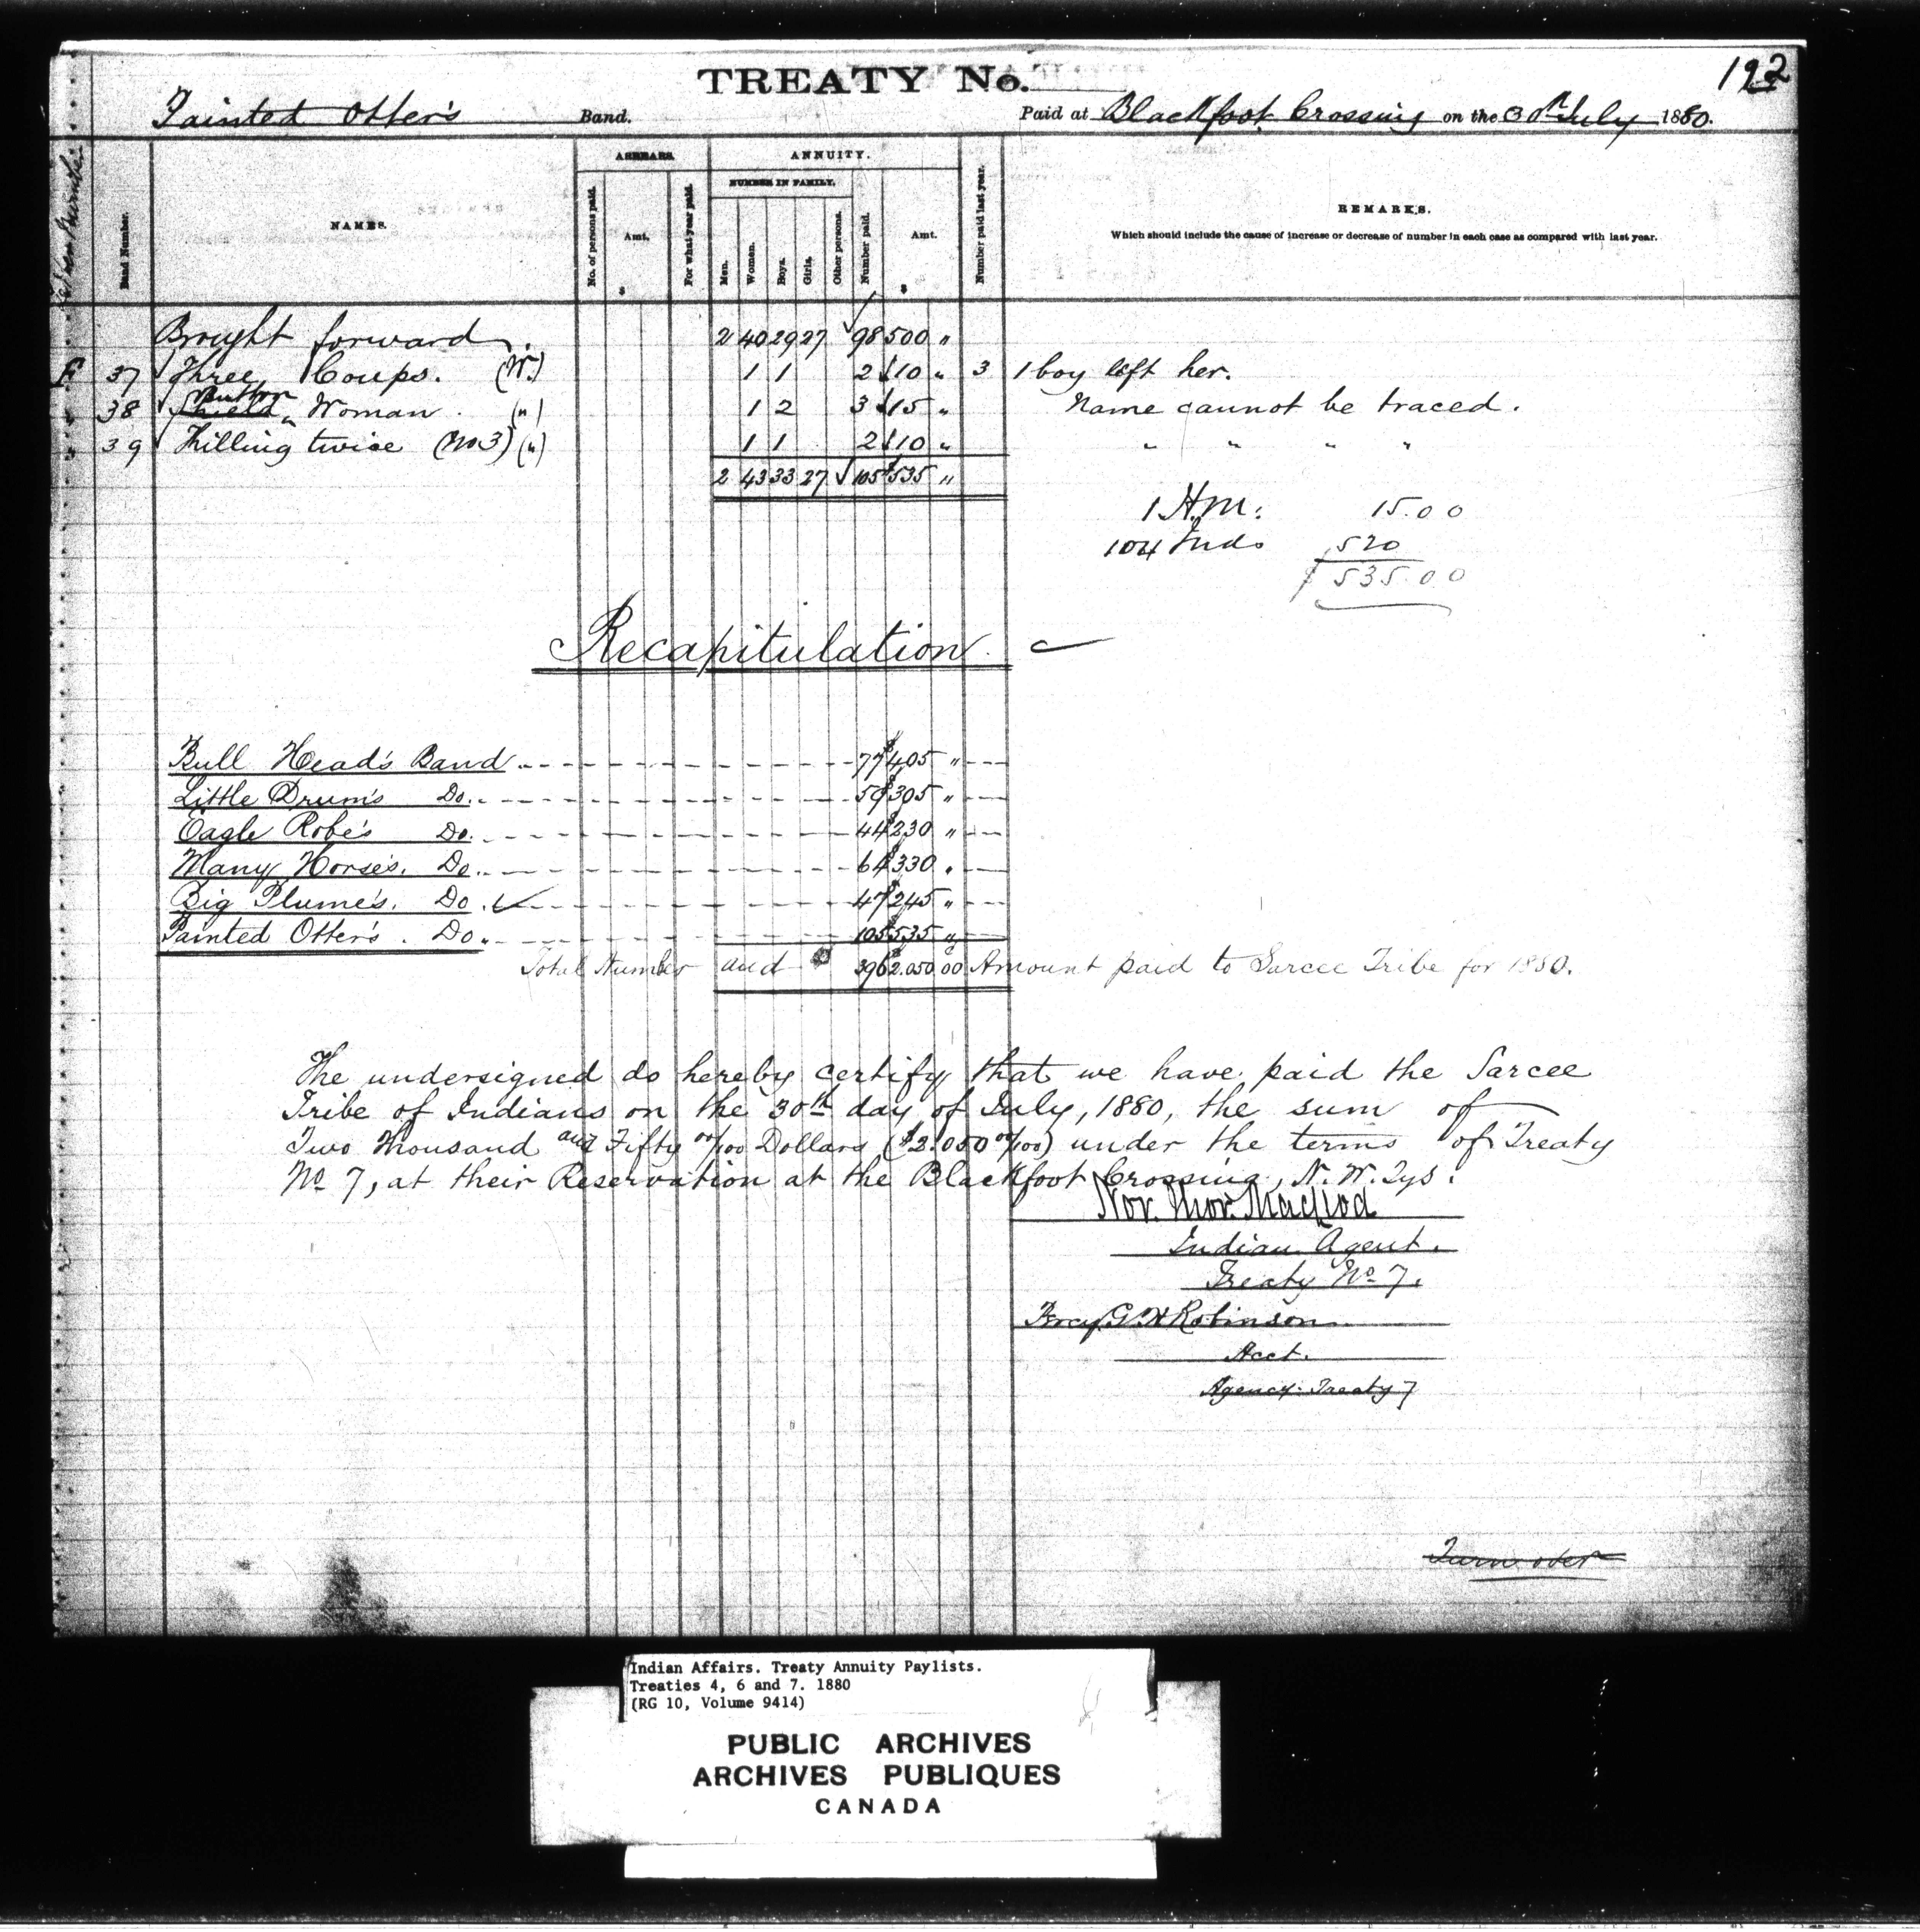 192
TREATY No.
Painted Otter's Band. Paid at Blackfoot Crossing on the 30th July 1880.
Band Number.
NAMES.
ARREARS.
No. of persons paid.
Amt.
$
For what year paid.
ANNUITY.
NUMBER IN FAMILY.
Men.
Women.
Boys.
Girls.
Other persons.
Number paid.
Amt.
$
Number paid last year.
REMARKS.
Which should include the cause of increase or decrease of number in each case as compared with last year.
Brought forward. 2 40 29 27 98 500 "
37 Three Coups. (W.) 1 1 2 $10 " 3 1 boy left her.
" 38 Shield Button Woman. (") 1 2 3 $15 " Name cannot be traced.
" 39 Killing twice (No 3) (") 1 1 2 $10 " " " " "
2 43 33 27 105 $535 "
1 H.M. 15.00
104 Inds 520
$ 535.00
Recapitulation.
Bull Head's Band 77 $405 "
Little Drum's Do. 59 $305 "
Eagle Robe's Do. 44 $230 "
Many Horse's. Do. 64 $330 "
Big Plume's. Do. 47 $245 "
Painted Otter's. Do. 105 $535 "
Total Number and 396 $2.050 00 Amount paid to Sarcee Tribe for 1880.
The undersigned do hereby certify that we have paid the Sarcee
Tribe of Indians on the 30th day of July, 1880, the sum of
Two Thousand and Fifty 00/100 Dollars ($2.050 00/100) under the terms of Treaty
No 7, at their Reservation at the Blackfoot Crossing, N. W. Tys.
Nor. Mor. Macleod
Indian Agent.
Treaty No 7.
Percy G. H Robinson
Acct.
Agency Treaty 7
Turn over
Indian Affairs. Treaty Annuity Paylists.
Treaties 4, 6 and 7. 1880
(RG 10, Volume 9414)
PUBLIC ARCHIVES
ARCHIVES PUBLIQUES
CANADA